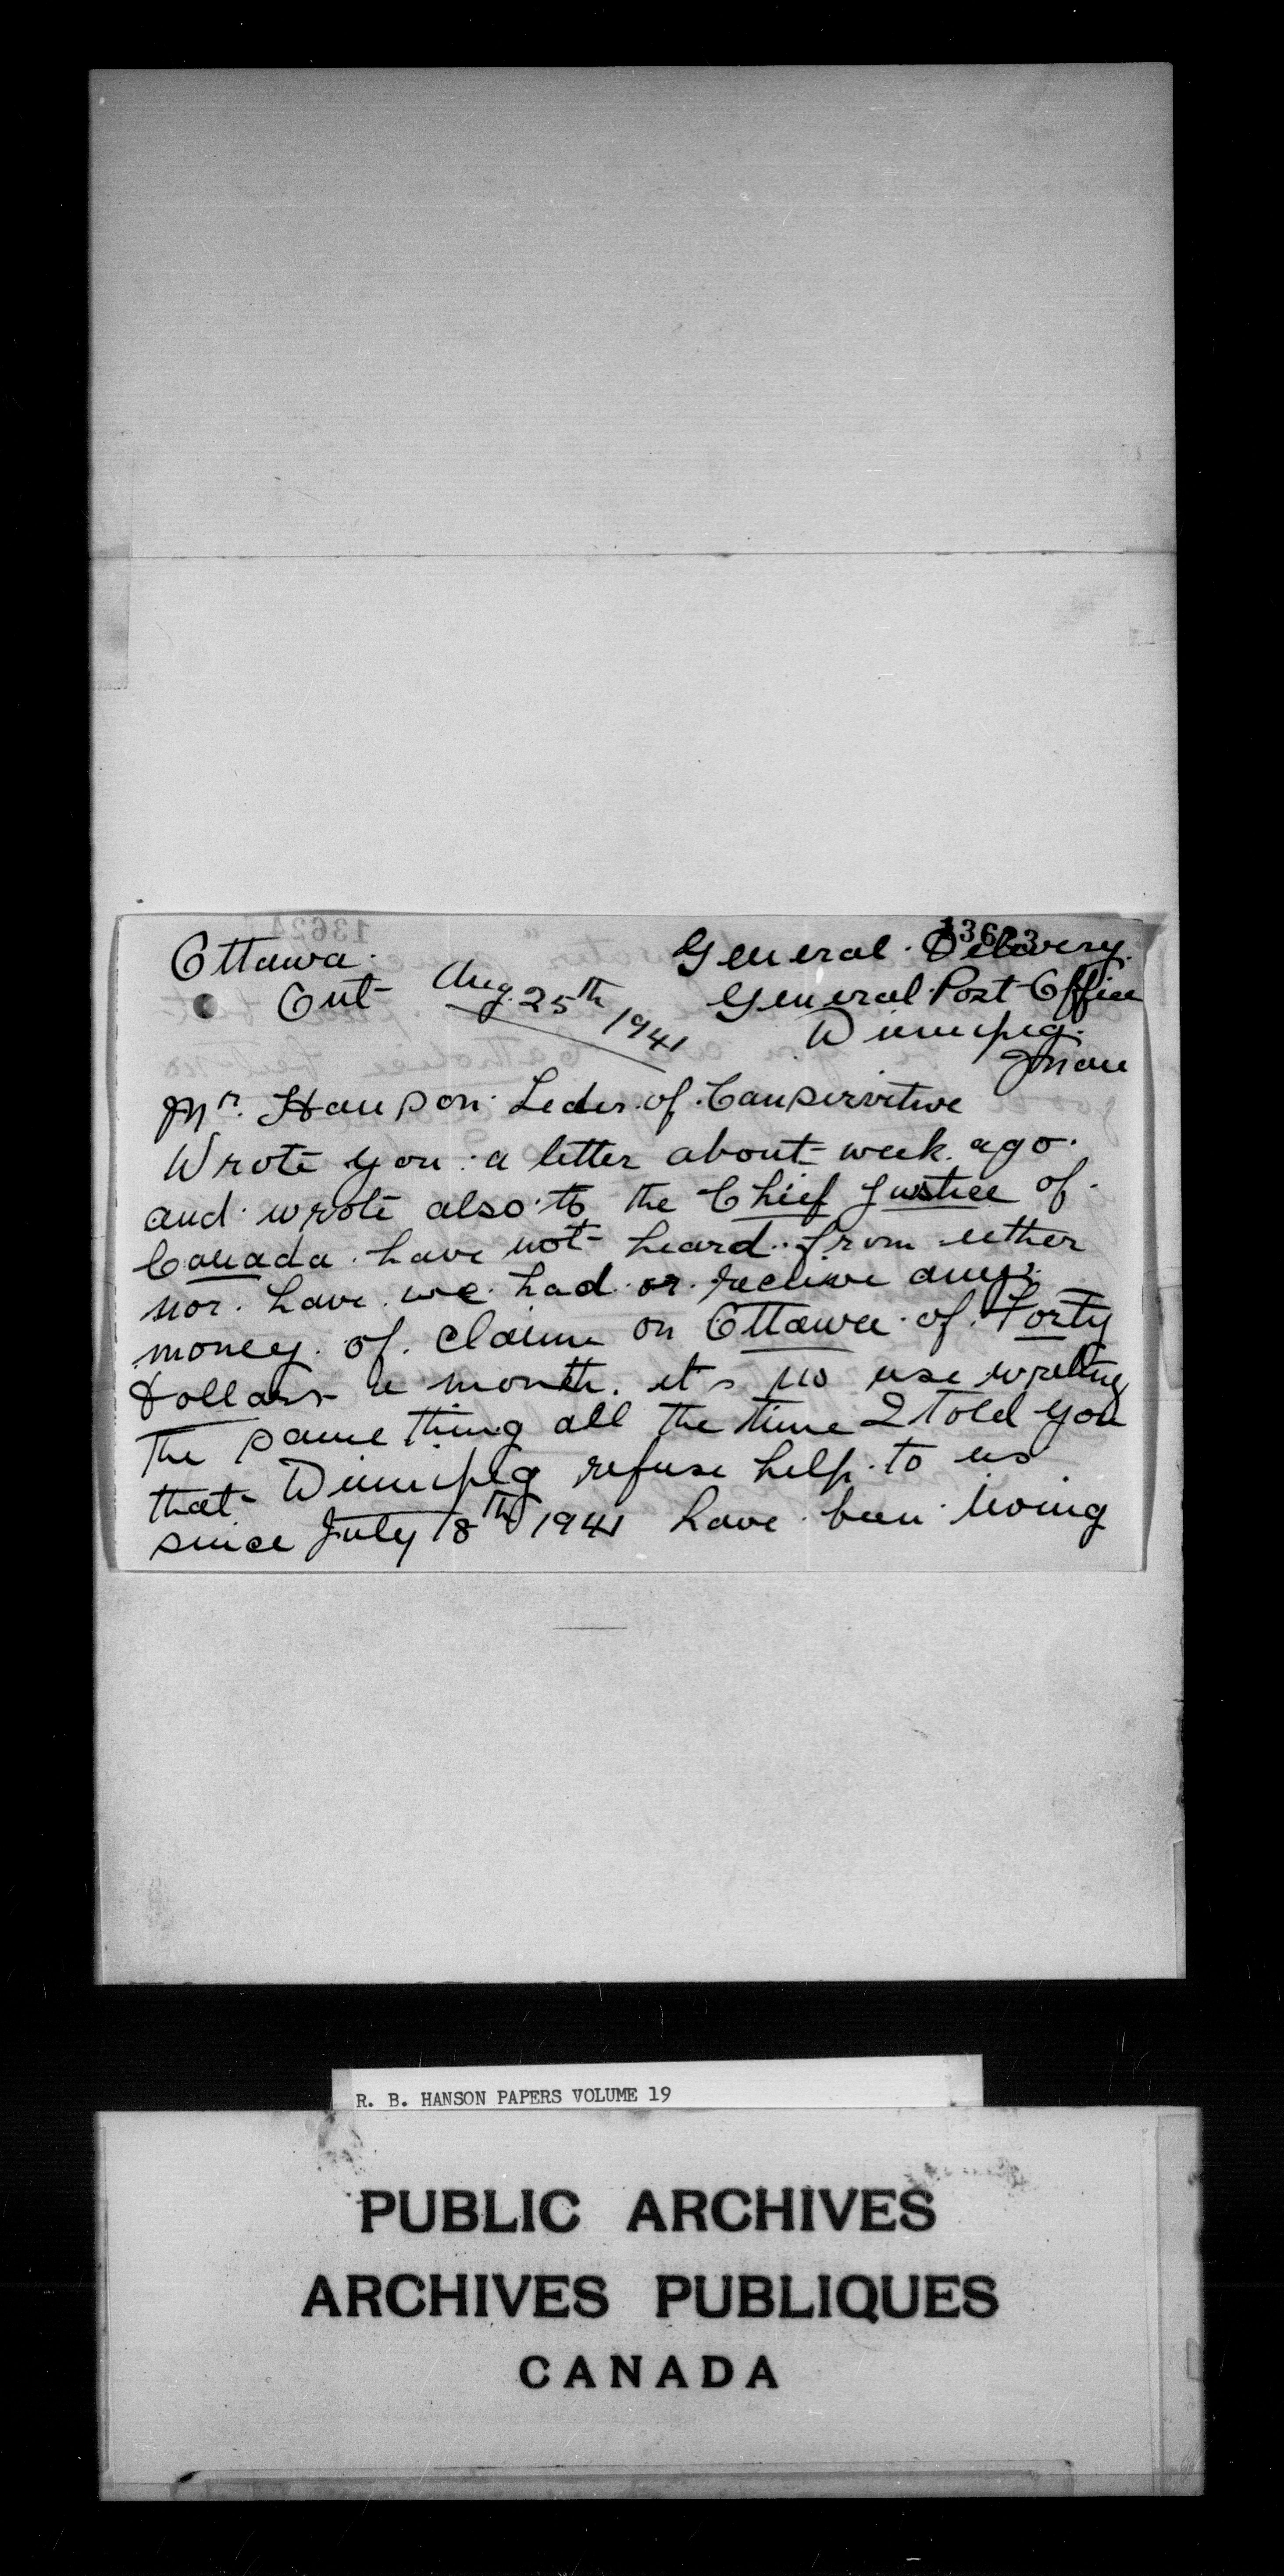 13623
Ottawa.
General Delivery.
Ont
Aug. 25th 1941
General Post Office
Winnipeg.
Man
Mr. Hanson Leder of Canservitive
Wrote you a letter about week ago.
and wrote also to the Chief Justice of
Canada have not heard from either
nor. have we had or recieve any
money of claim on Ottawa of Forty
Dollars a month. it's no use writting
The same thing all the time I told you
that Winnipeg refuse help to us
since July 18th 1941 have been living
R. B. HANSON PAPERS VOLUME 19
PUBLIC ARCHIVES
ARCHIVES PUBLIQUES
CANADA